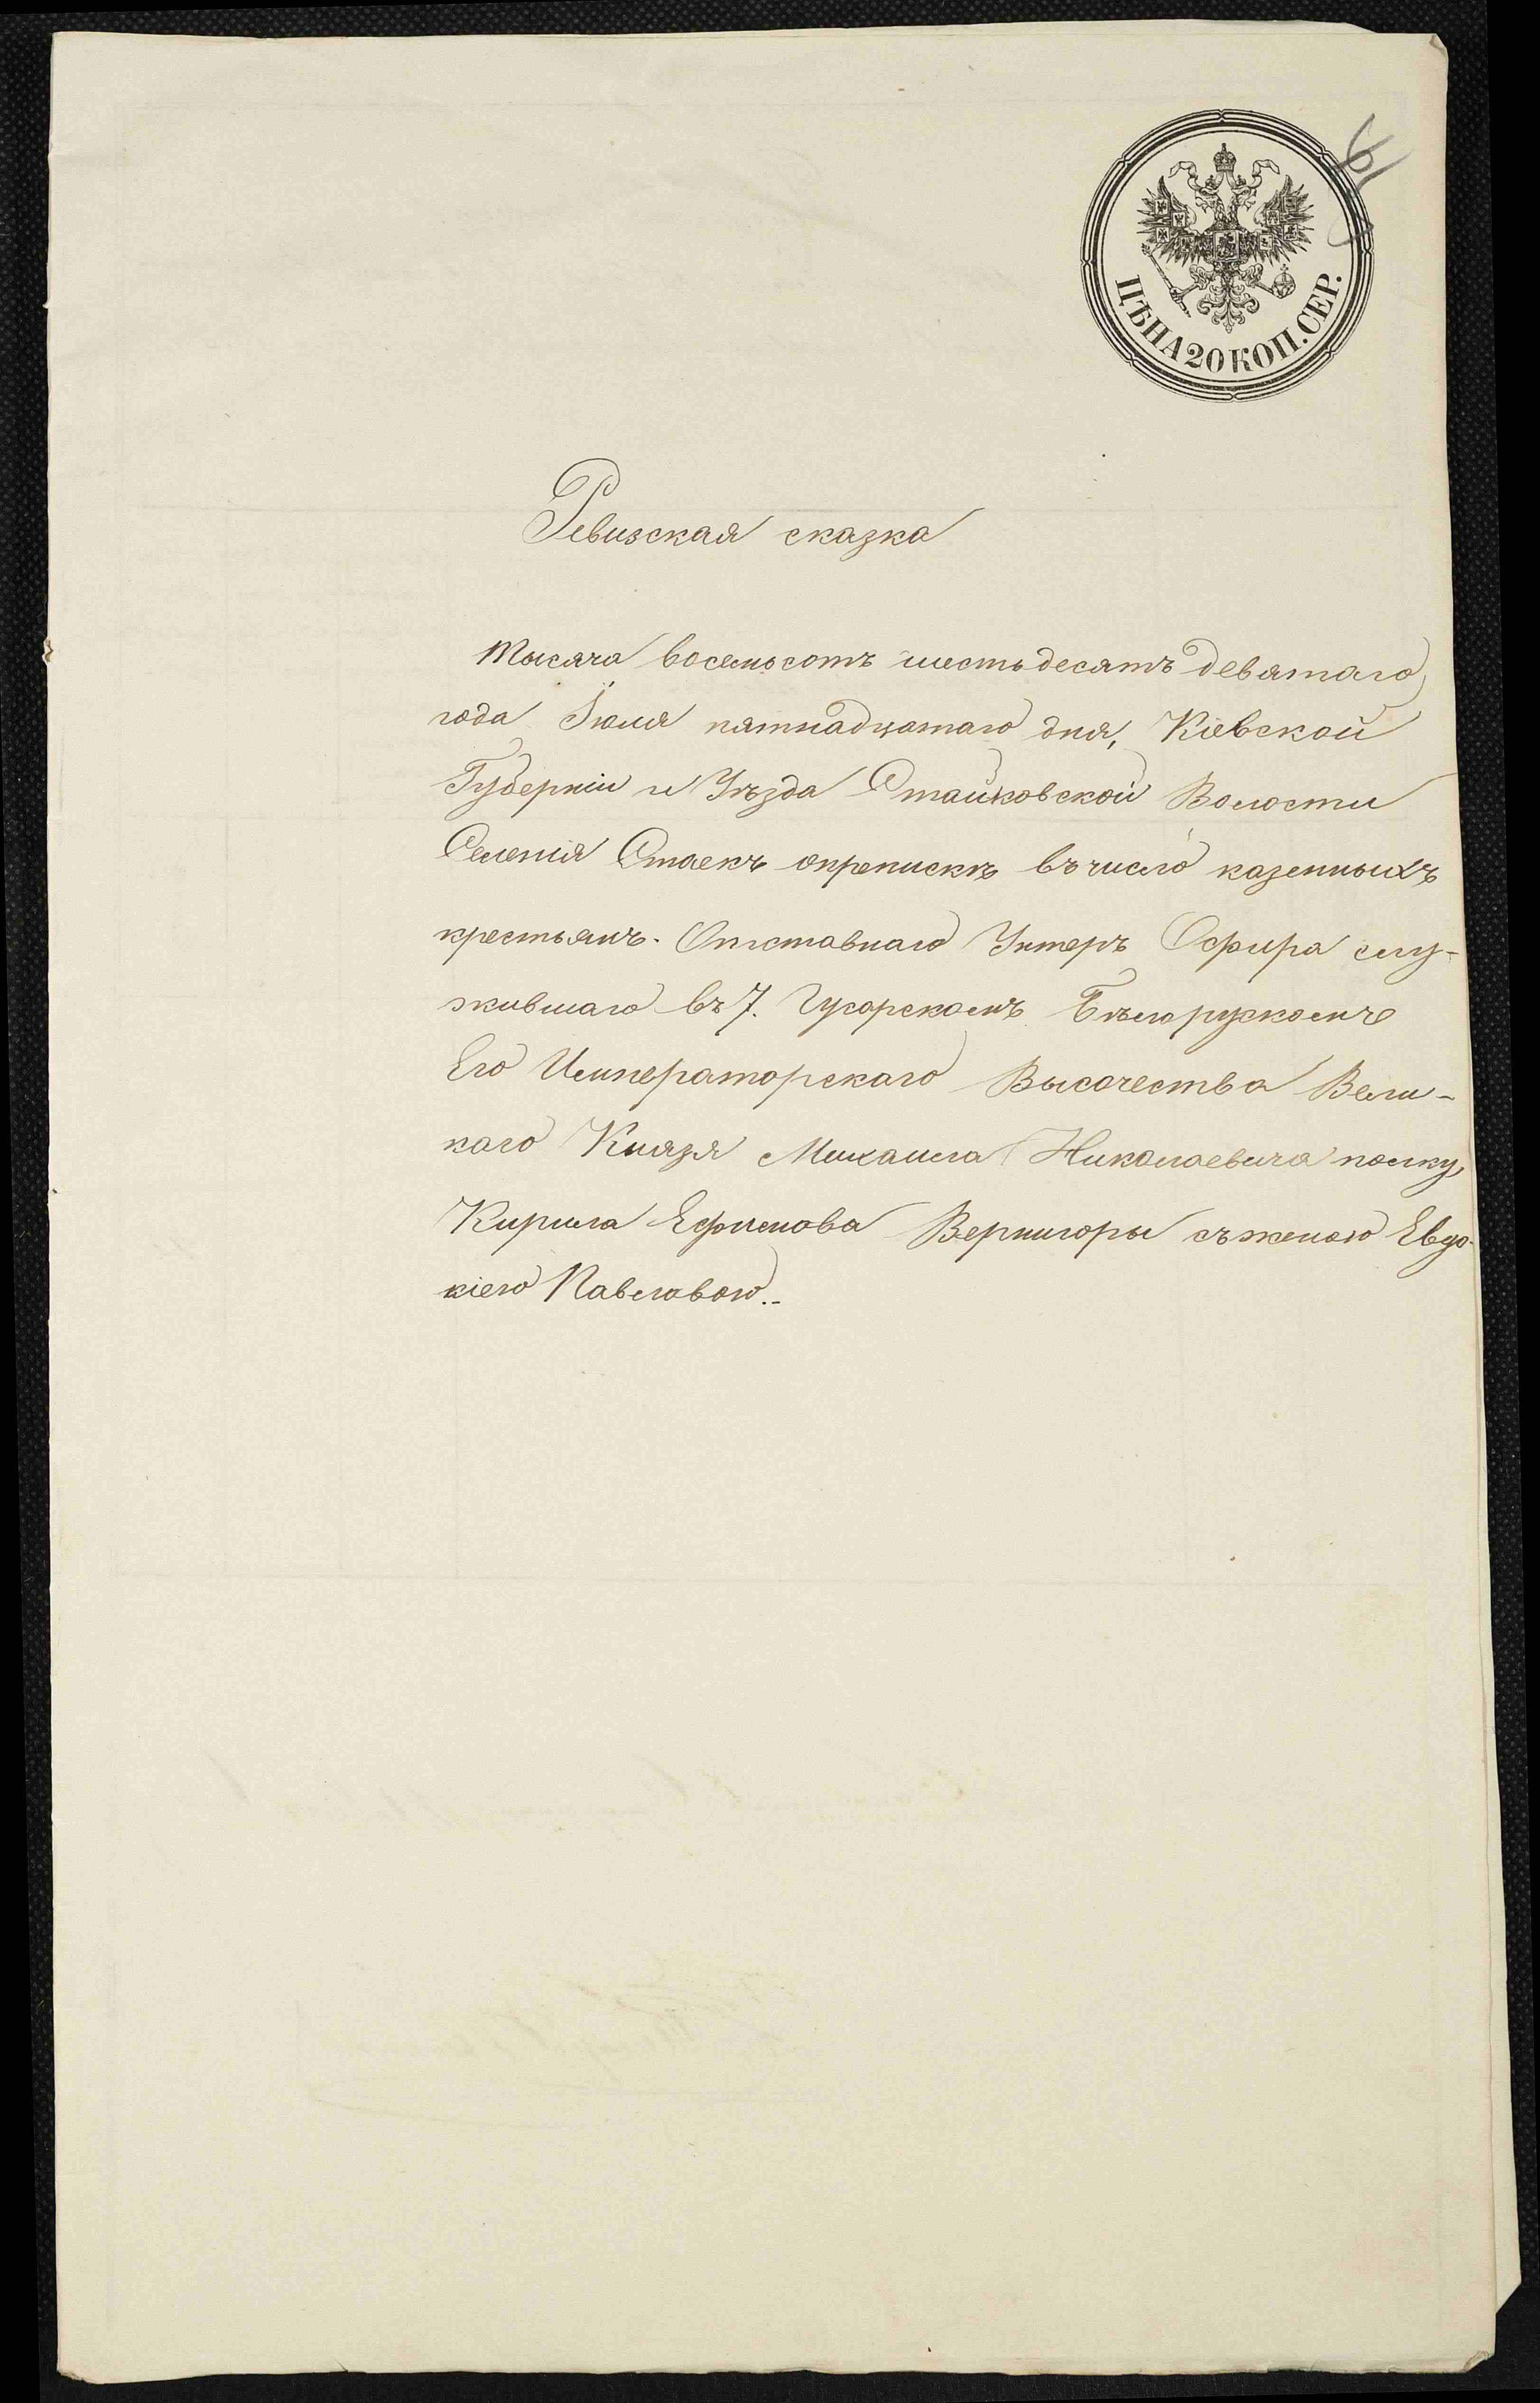 ЦѢНА 20 КОП. СЕР.
Ревизская сказка
Тысяча восемьсотъ шестьдесятъ девятаго
года Іюля пятнадцатаго дня, Кіевской
Губерніи и Уѣзда Стайковской Волости
Селенія Стаекъ опрепискѣ въ число казенныхъ
крестьянъ. Отставнаго Унтеръ Офицра слу-
жившаго въ 7. Гусарскомъ Бѣлорускомъ
Его Императорскаго Высочества Вели-
каго Князя Михаила Николаевича полку,
Кирила Ефимова Вернигоры съ женою Евдо-
кіею Павловою.-